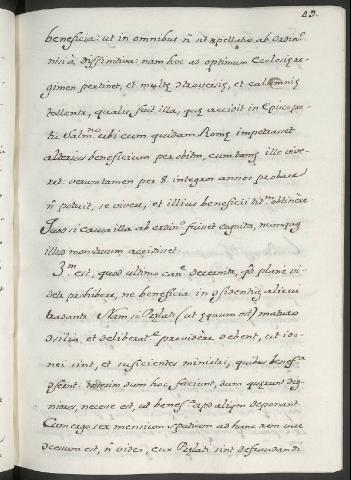 49.
beneficia: ut in omnibus ñ sit apellatio ab ordin.º
nisi à diffinitiva: nam hoc ad optimum Ecclesię re-
gimen pertinet, et multę controversię, et calumnię
tollentur, qualis fuit illa, quę accidit in Episcopa-
tu Salm.no ubi cum quidam Romę impetrasset
alterius beneficium per obitum, cum tamen ille vive-
ret: verumtamen per 8. integros annos probare
ñ potuit, se vivere, et illius beneficii tit.m obtinere.
Quod si causa ilia ab ordin.º fuisset cognita, nunquam
illud monstruum accidisset.
3.m est, quod ultimo can.e decernitur, quo plane vi-
detur prohibere, ne beneficia in confidentiam alicui
tradantur. Nam si Pręlati (ut ęquum est) maturo
consilio, et deliberat.e providere debent, ut ido-
nei sint, et suficientes ministri, quibus benef.a
conferant: interim dum hoc faciunt, dum quęrunt dig-
niores, necesse est, ut benef.a apud aliquem deponant.
Cum ergo sex mensium spatium ad hanc rem sit
necessum est, ñ video, cur Pręlati sint defraudandi